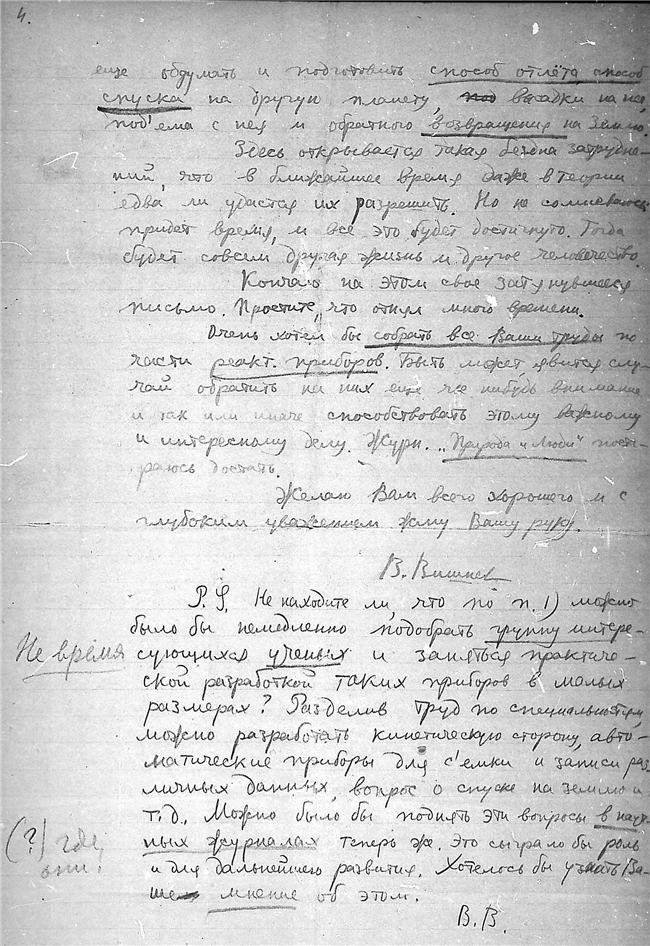 4.
еще обдумать и подготовить способ отлёта, способ
спуска на другую планету, под высадки на нее,
под'ема с нея и обратного возвращения на Землю.
Здесь открывается такая бездна затрудне-
ний, что в ближайшее время даже в теории
едва ли удастся их разрешить. Но не сомневаюсь
придет время, и все это будет достигнуто. Тогда
будет совсем другая жизнь и другое человечество.
Кончаю на этом свое затянувшееся
письмо. Простите, что отнял много времени.
Очень хотел бы собрать все Ваши труды по
части реакт. приборов. Быть может, явится слу-
чай обратить на них еще чье нибудь внимание
и так или иначе способствовать этому важному
и интересному делу. Журн. „Природа и Люди" поста-
раюсь достать.
Желаю Вам всего хорошего и с
глубоким уважением жму Вашу руку.
В.
P. S. Не находите ли, что по п. 1) можно
было бы немедленно подобрать группу интере-
Не время
сующихся ученых и заняться практиче-
ской разработкой таких приборов в малых
размерах? Разделив труд по специальностям,
можно разработать кинетическую сторону, авто-
матические приборы для с'емки и записи раз
личных данных, вопрос о спуске на землю и
т.д. Можно было бы поднять эти вопросы в науч
(?) где
они.
ных журналах теперь же. Это сыграло бы роль
и для дальнейшего развития. Хотелось бы узнать Ва-
ше мнение об этом.
В. В.